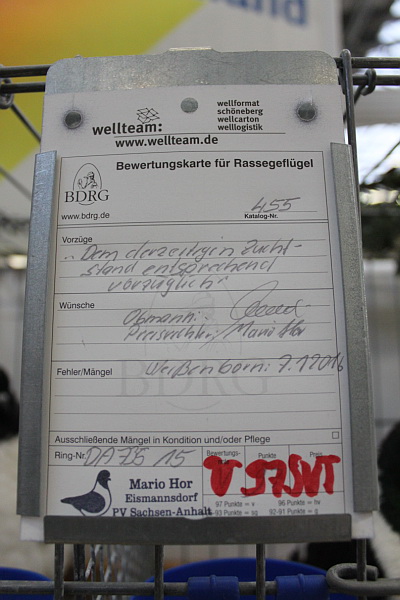 wellteam:
wellformat
schöneberg
wellcarton
welllogistik
www.wellteam.de
Bewertungskarte für Rassegeflügel
BDRG
www.bdrg.de
455
Katalog-Nr.
Vorzüge
"Dem derzeitigen Zucht-
stand entsprechend
vorzüglich"
Wünsche
Obmann:
Preisrichter: Mario Hor
Fehler/Mängel
Weißenborn: 9.1.2016
BDRG
Ausschließende Mängel in Kondition und/oder Pflege
Ring-Nr. 15
Bewertungs- Punkte Preis
V 97 SVT
97 Punkte = v 96 Punkte = hv
93 Punkte = sg 92-91 Punkte = g
Mario Hor
Eismannsdorf
PV Sachsen-Anhalt